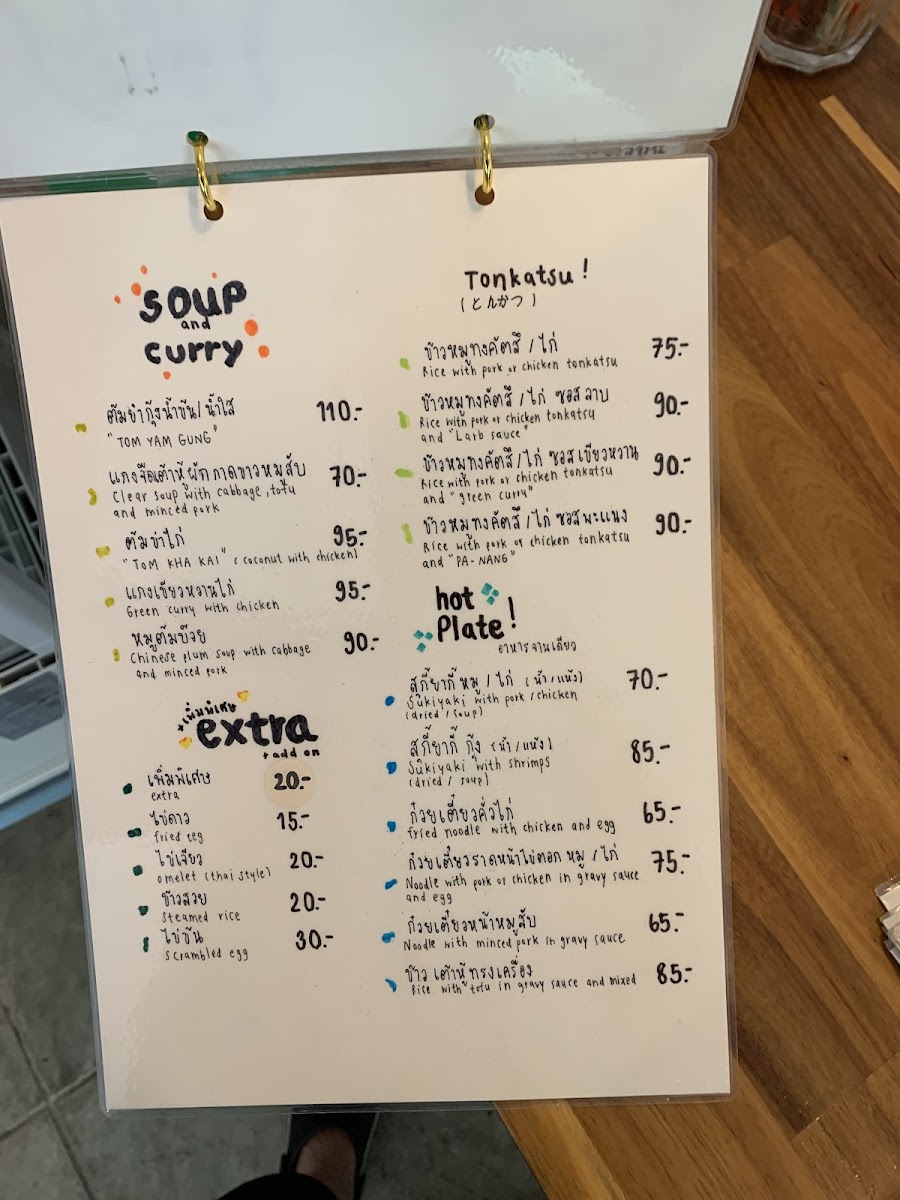 SOUP
and
curry
ต้มยำกุ้งน้ำข้น/น้ำใส 110.-
"TOM YAM GUNG"
แกงจืดเต้าหู้ผักกาดขาวหมูสับ 70.-
Clear soup with cabbage, tofu
and minced pork
ต้มข่าไก่ 95.-
"TOM KHA KAI" (coconut with chicken)
แกงเขียวหวานไก่ 95.-
Green curry with chicken
หมูต้มบ๊วย 90.-
Chinese plum soup with cabbage
and minced pork
เพิ่มพิเศษ
extra
+ add on
เพิ่มพิเศษ 20.-
extra
ไข่ดาว 15.-
fried egg
ไข่เจียว 20.-
omelet (thai style)
ข้าวสวย 20.-
Steamed rice
ไข่ข้น 30.-
Scrambled egg
Tonkatsu!
(とんかつ)
ข้าวหมูทงคัตสึ / ไก่ 75.-
Rice with pork or chicken tonkatsu
ข้าวหมูทงคัตสึ / ไก่ ซอสลาบ 90.-
Rice with pork or chicken tonkatsu
and "Larb sauce"
ข้าวหมูทงคัตสึ / ไก่ ซอสเขียวหวาน 90.-
Rice with pork or chicken tonkatsu
and "green curry"
ข้าวหมูทงคัตสึ / ไก่ ซอสพะแนง 90.-
Rice with pork or chicken tonkatsu
and "PA-NANG"
hot
Plate!
อาหารจานเดียว
สุกี้ยากี้ หมู / ไก่ (น้ำ/แห้ง) 70.-
Sukiyaki with pork / chicken
(dried / soup)
สุกี้ยากี้ กุ้ง (น้ำ/แห้ง) 85.-
Sukiyaki with shrimps
(dried / soup)
ก๋วยเตี๋ยวคั่วไก่ 65.-
fried noodle with chicken and egg
ก๋วยเตี๋ยวราดหน้าไข่ตอก หมู / ไก่ 75.-
Noodle with pork or chicken in gravy sauce
and egg
ก๋วยเตี๋ยวหน้าหมูสับ 65.-
Noodle with minced pork in gravy sauce
ข้าว เต้าหู้ทรงเครื่อง 85.-
Rice with tofu in gravy sauce and mixed